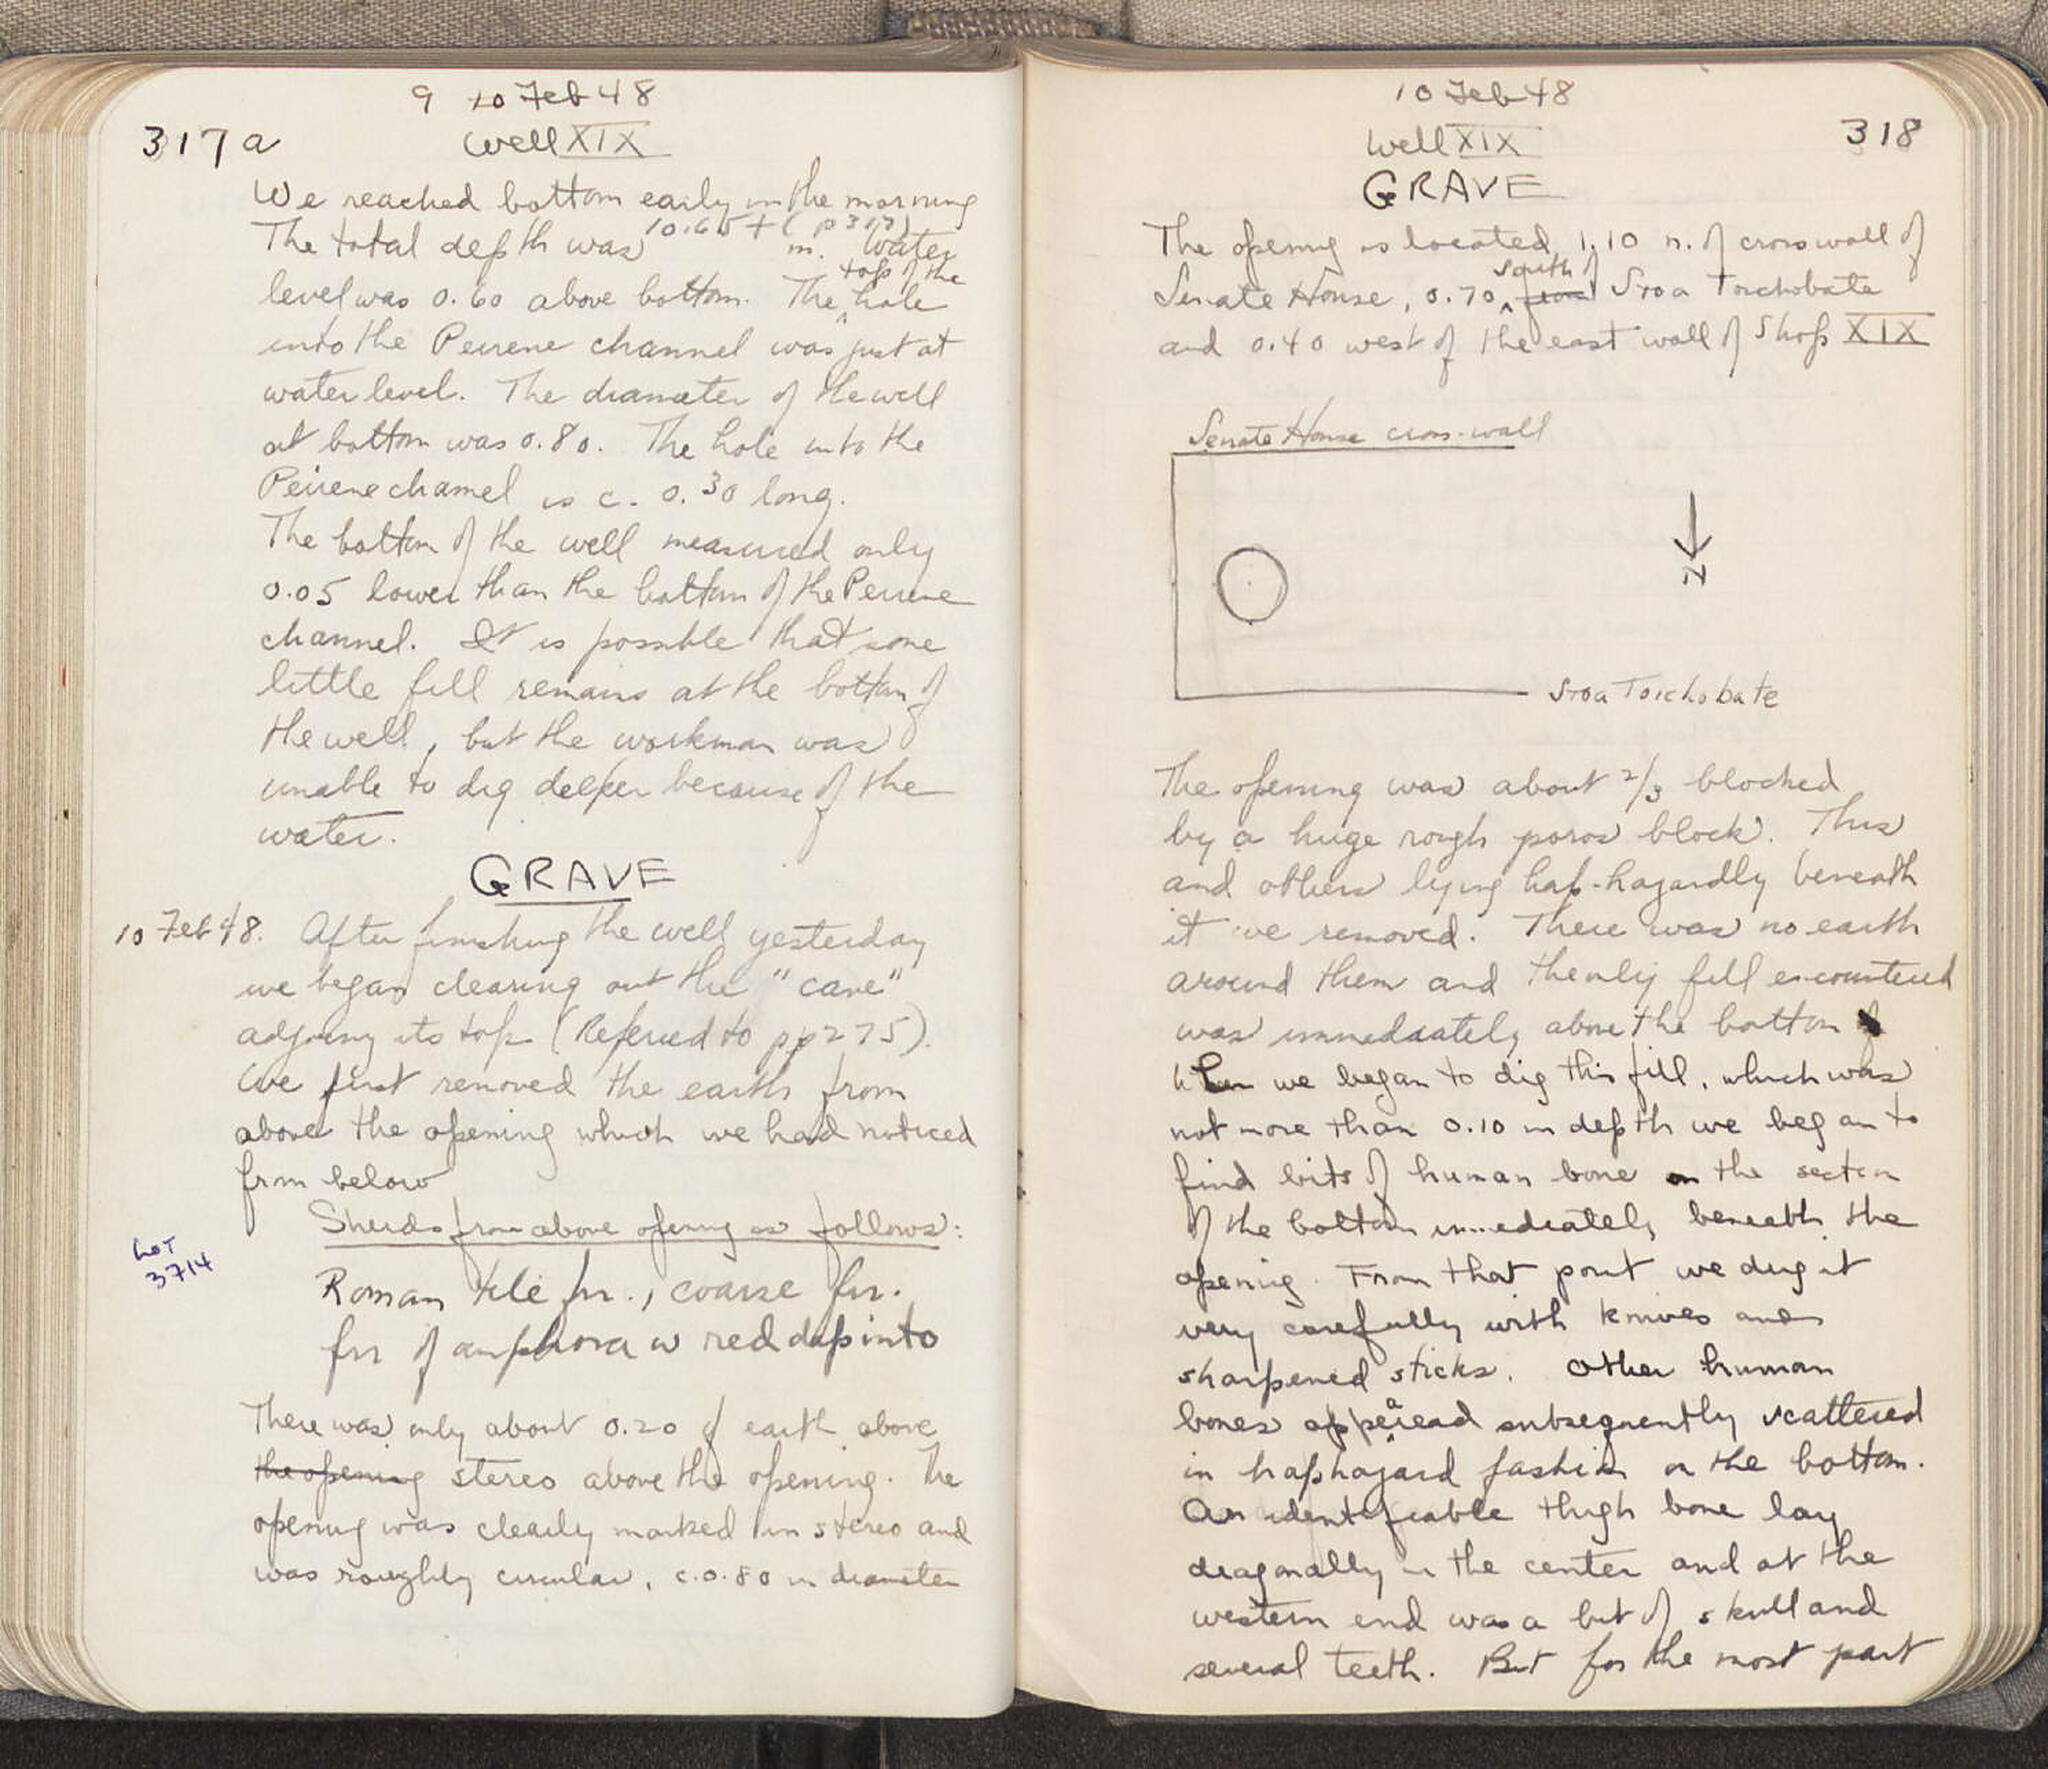 9 10 Feb 48
317a
Well XIX
We reached bottom early in the morning
The total depth was 10.65 + (p 317) m. Water
level was 0.60 above bottom. The top of the hole
into the Peirene channel was just at
water level. The diameter of the well
at bottom was 0.80. The hole into the
Peirene channel is c. 0.30 long.
The bottom of the well measured only
0.05 lower than the bottom of the Peirene
channel. It is possible that some
little fill remains at the bottom of
the well, but the workman was
unable to dig deeper because of the
water.
GRAVE
10 Feb 48. After finishing the well yesterday
we began clearing out the "cave"
adjoing its top (Refered to pp 275).
We first removed the earth from
above the opening which we had noticed
from below
Sherds from above opening as follows:
Lot
3714
Roman tile frr., coarse frr.
frr of amphora w red dipinto
There was only about 0.20 of earth above
the opening stereo above the opening. The
opening was clearly marked in stereo and
was roughly circular, c. 0.80 in diameter
10 Feb 48
318
Well XIX
GRAVE
The opening is located 1.10 n. of cross wall of
Senate House, 0.70 south of Stoa Toichobate
and 0.40 west of the east wall of Shop XIX
Senate House cross-wall
N
Stoa Toichobate
The opening was about 2/3 blocked
by a huge rough poros block. This
and others lying hap-hazardly beneath
it we removed. There was no earth
around them and the only fill encountered
was immediately above the bottom
When we began to dig this fill, which was
not more than 0.10 in depth we began to
find bits of human bone on the section
of the bottom immediately beneath the
opening. From that point we dug it
very carefully with knives and
sharpened sticks. Other human
bones appearead subsequently scattered
in haphazard fashion on the bottom.
An identifiable thigh bone lay
diagonally in the center and at the
western end was a bit of skull and
several teeth. But for the most part